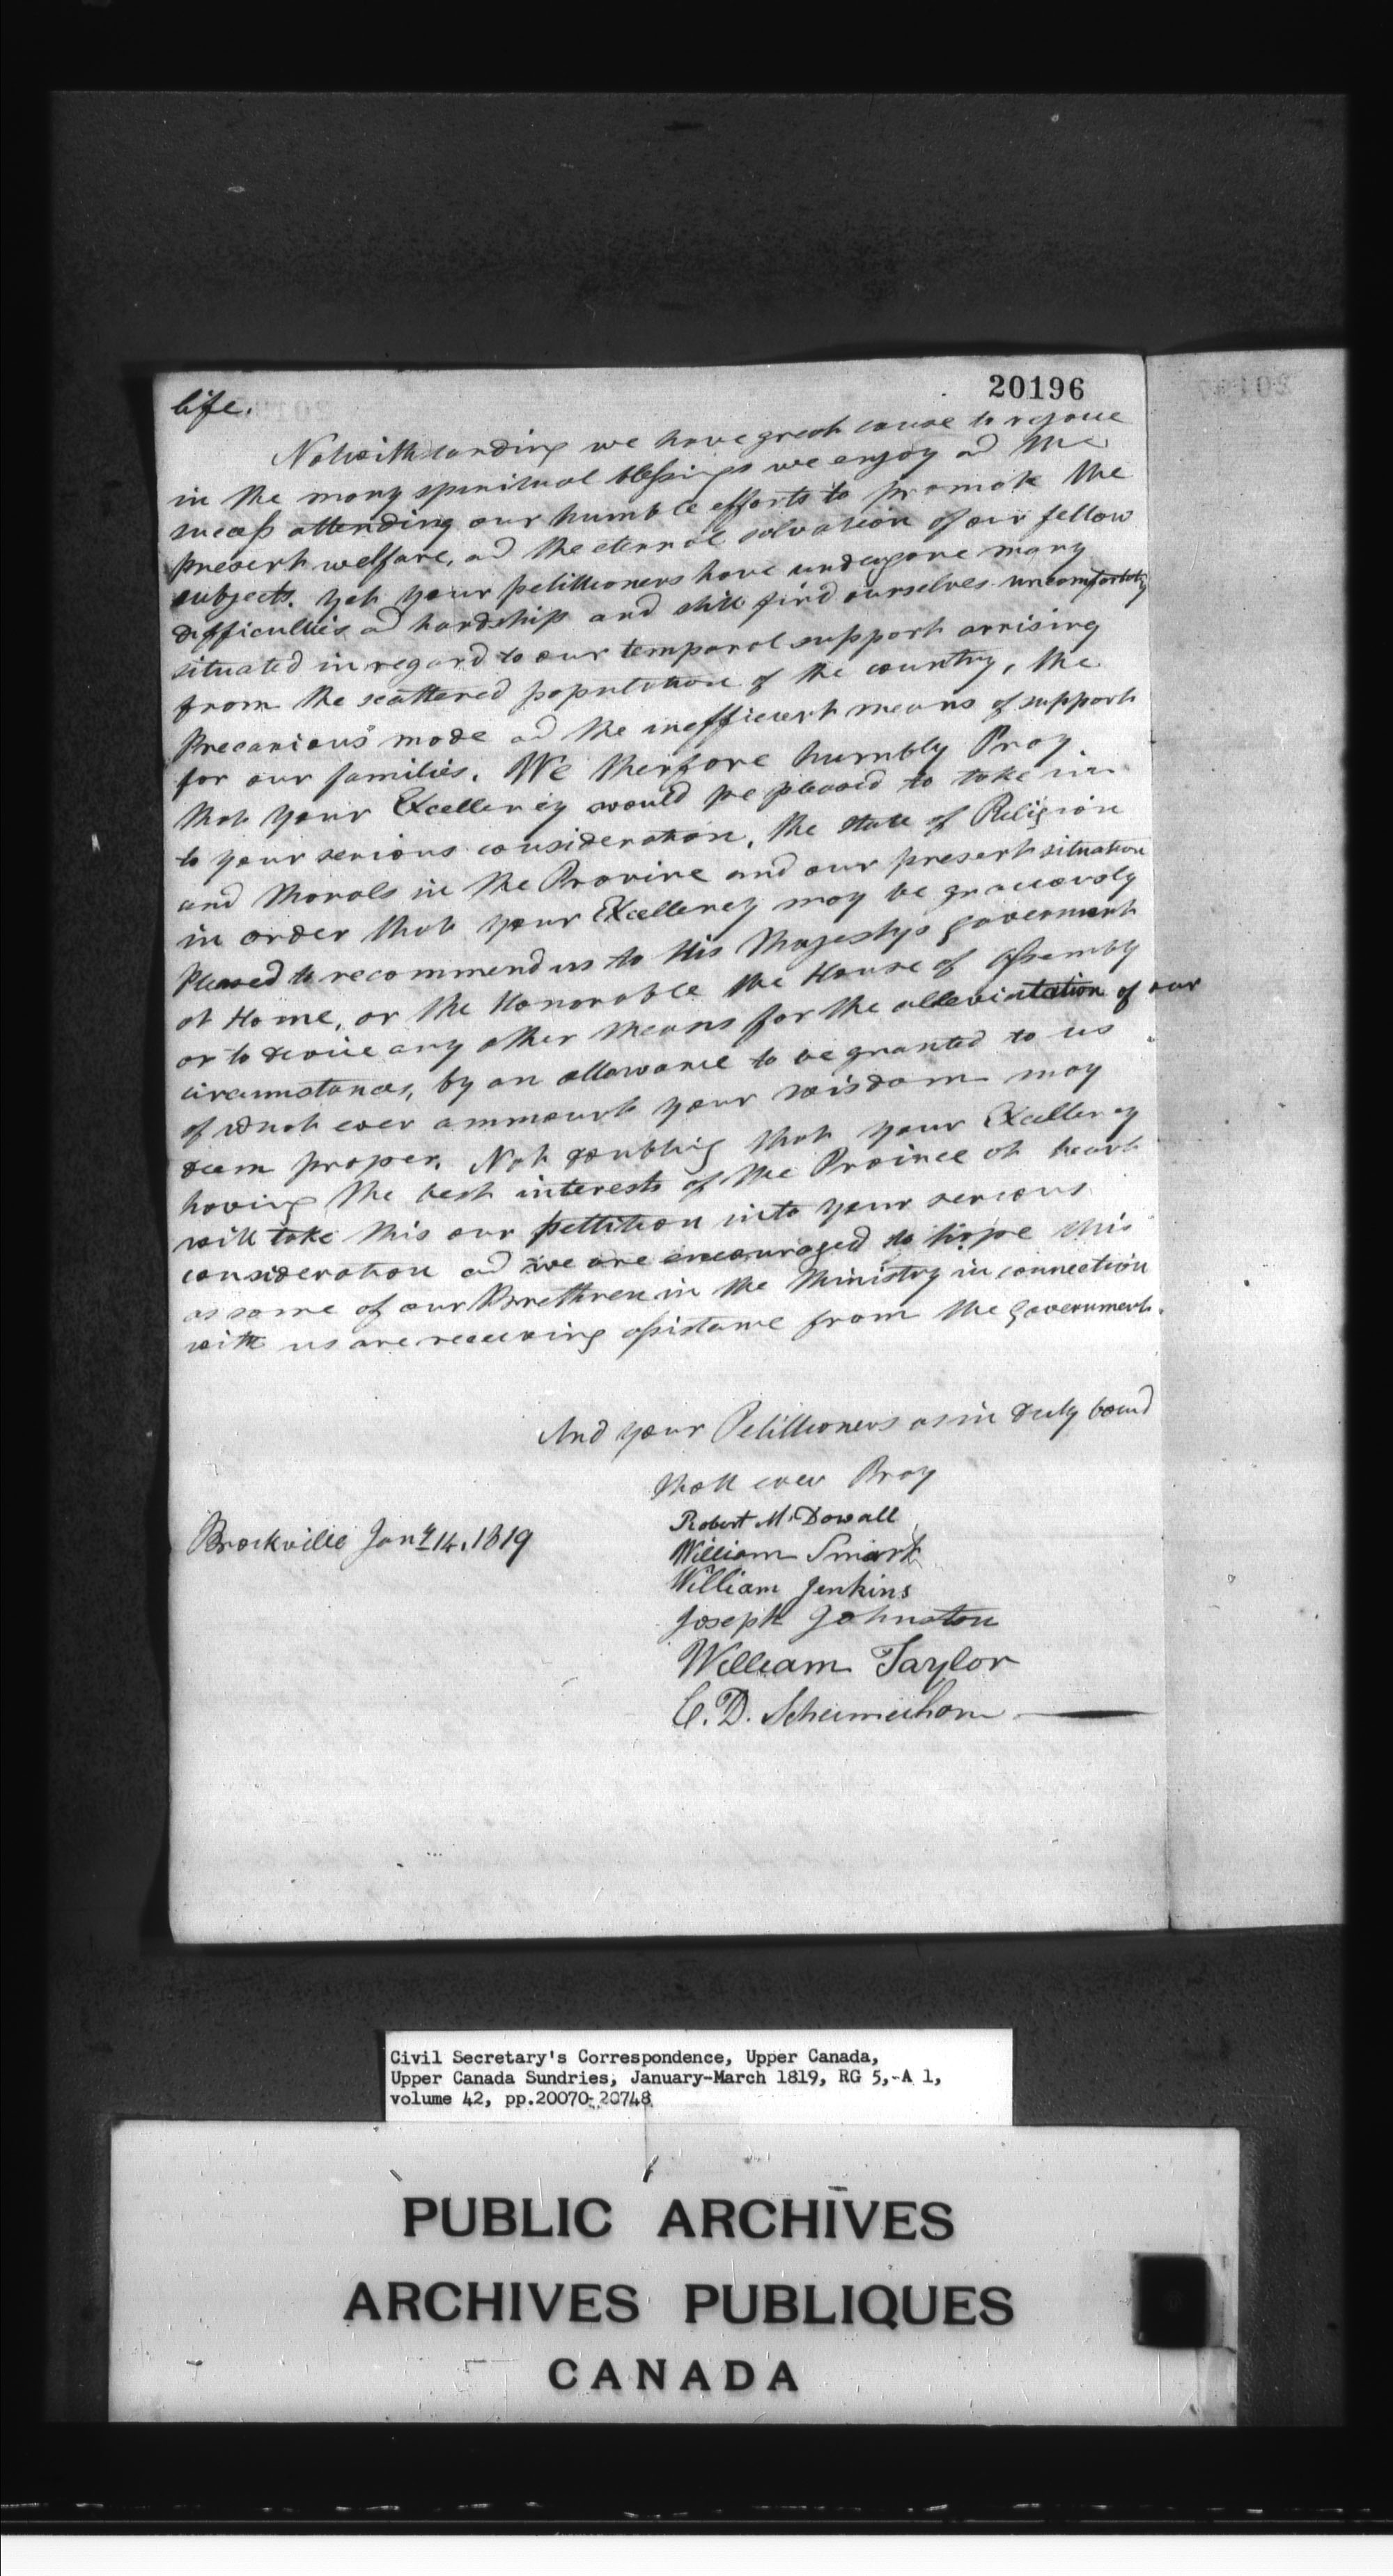 20196
life.
Notwithstanding we have great cause to rejoice
in the many spiritual blessings we enjoy ad the
success attending our humble efforts to promote the
present welfare, ad the eternal salvation of our fellow
subjects. Yet your petittioners have undergone many
difficulties ad hardships and still find ourselves uncomfortably
situated in regard to our temporal support arrising
from the scattered population of the country, the
Precarious mode ad the inefficient means of support
for our families. We therfore humbly Pray.
that your Excellency would be pleased to take in
to your serious consideration, the state of Religion
and Morals in the Province and our present situation
in order that your Excellency may be graciously
Pleased to recommend us to His Majestys goverment
at Home, or the Honorable the House of Assembly
or to devise any other means for the alleviatation of our
circumstances, by an allowance to be granted to us
of what ever ammount your wisdom may
deem proper. Not doubting that your Excellency
having the best interests of the Province at heart
will take this our pettition into your serious
consideration ad we are encouraged to hope this
as some of our Brethren in the Ministry in connection
with us are receiving assistance from the Government.
And your Petittioners as in duty bound
shall ever Pray
Brockville Jany 14. 1819
Robert McDowall
William Smart
William Jenkins
Joseph Johnston
William Taylor
C. D. Schermerhorn
Civil Secretary's Correspondence, Upper Canada,
Upper Canada Sundries, January-March 1819, RG 5,-A 1,
volume 42, pp.20070-20748
PUBLIC ARCHIVES
ARCHIVES PUBLIQUES
CANADA